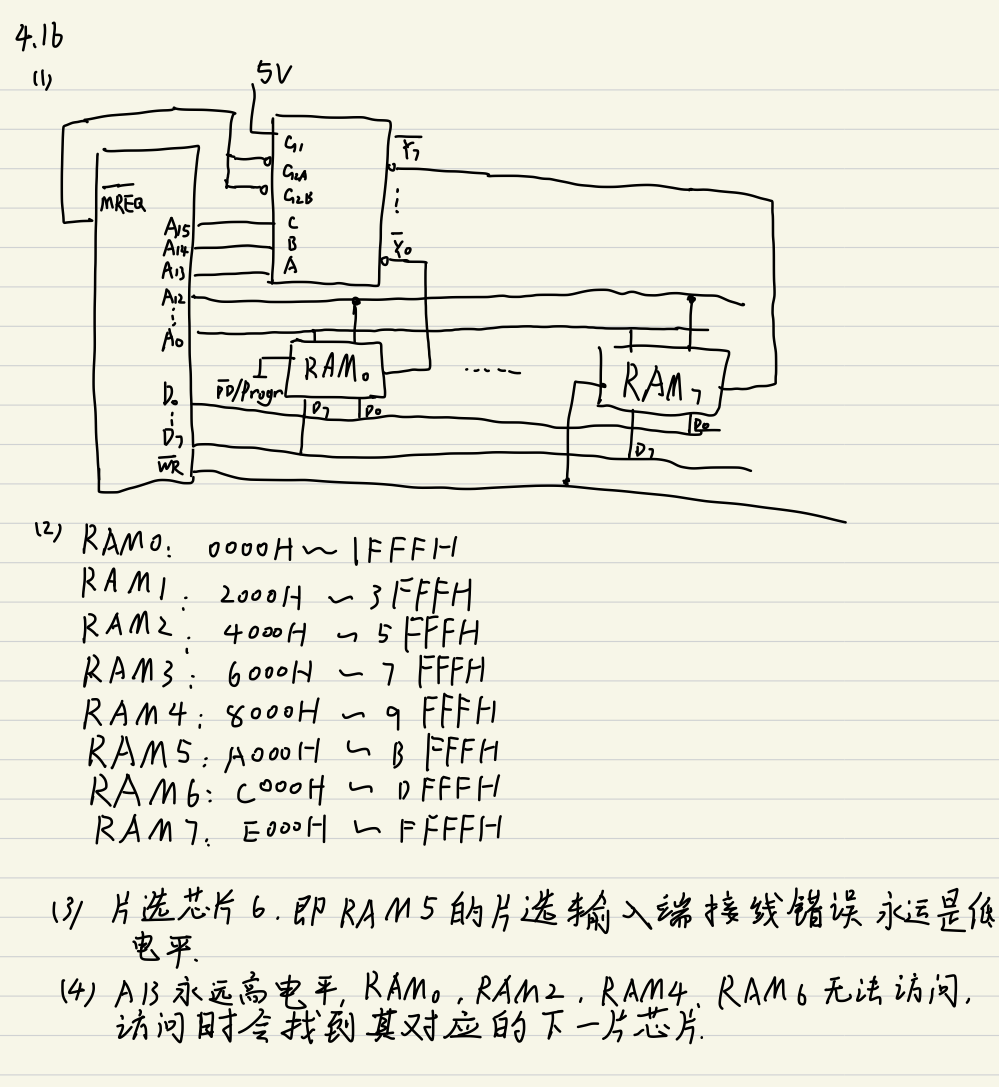 4.16
(1)
5V
G₁
G₂A
G₂B
C
B
A
Y̅₇
⋮
Y̅₀
M̅R̅E̅Q̅
A₁₅
A₁₄
A₁₃
A₁₂
⋮
A₀
D₀
⋮
D₇
W̅R̅
RAM₀
P̅D̅/Progr
D₇ D₀
……
RAM₇
D₀
D₇
(2) RAM0: 0000H~1FFFH
RAM1: 2000H ~ 3FFFH
RAM2: 4000H ~ 5FFFH
RAM3: 6000H ~ 7FFFH
RAM4: 8000H ~ 9FFFH
RAM5: A000H ~ BFFFH
RAM6: C000H ~ DFFFH
RAM7: E000H ~ FFFFH
(3) 片选芯片6.即RAM5的片选输入端接线错误永远是低
电平.
(4) A13永远高电平, RAM₀, RAM2, RAM4, RAM6无法访问,
访问时会找到其对应的下一片芯片.